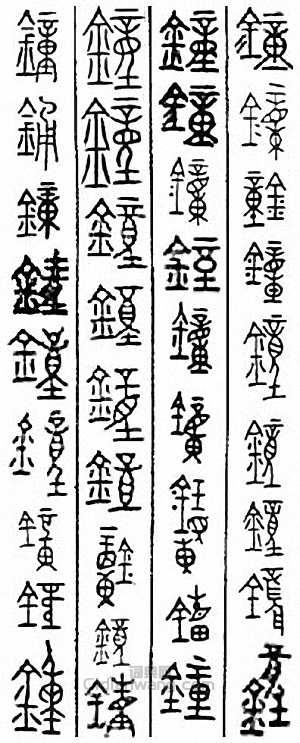 鐘鐘鐘鐘鐘鐘鐘鐘鐘
鐘鐘鐘鐘鐘鐘鐘鐘鐘
鐘鐘鐘鐘鐘鐘鐘鐘鐘
鐘鐘鐘鐘鐘鐘鐘鐘鐘